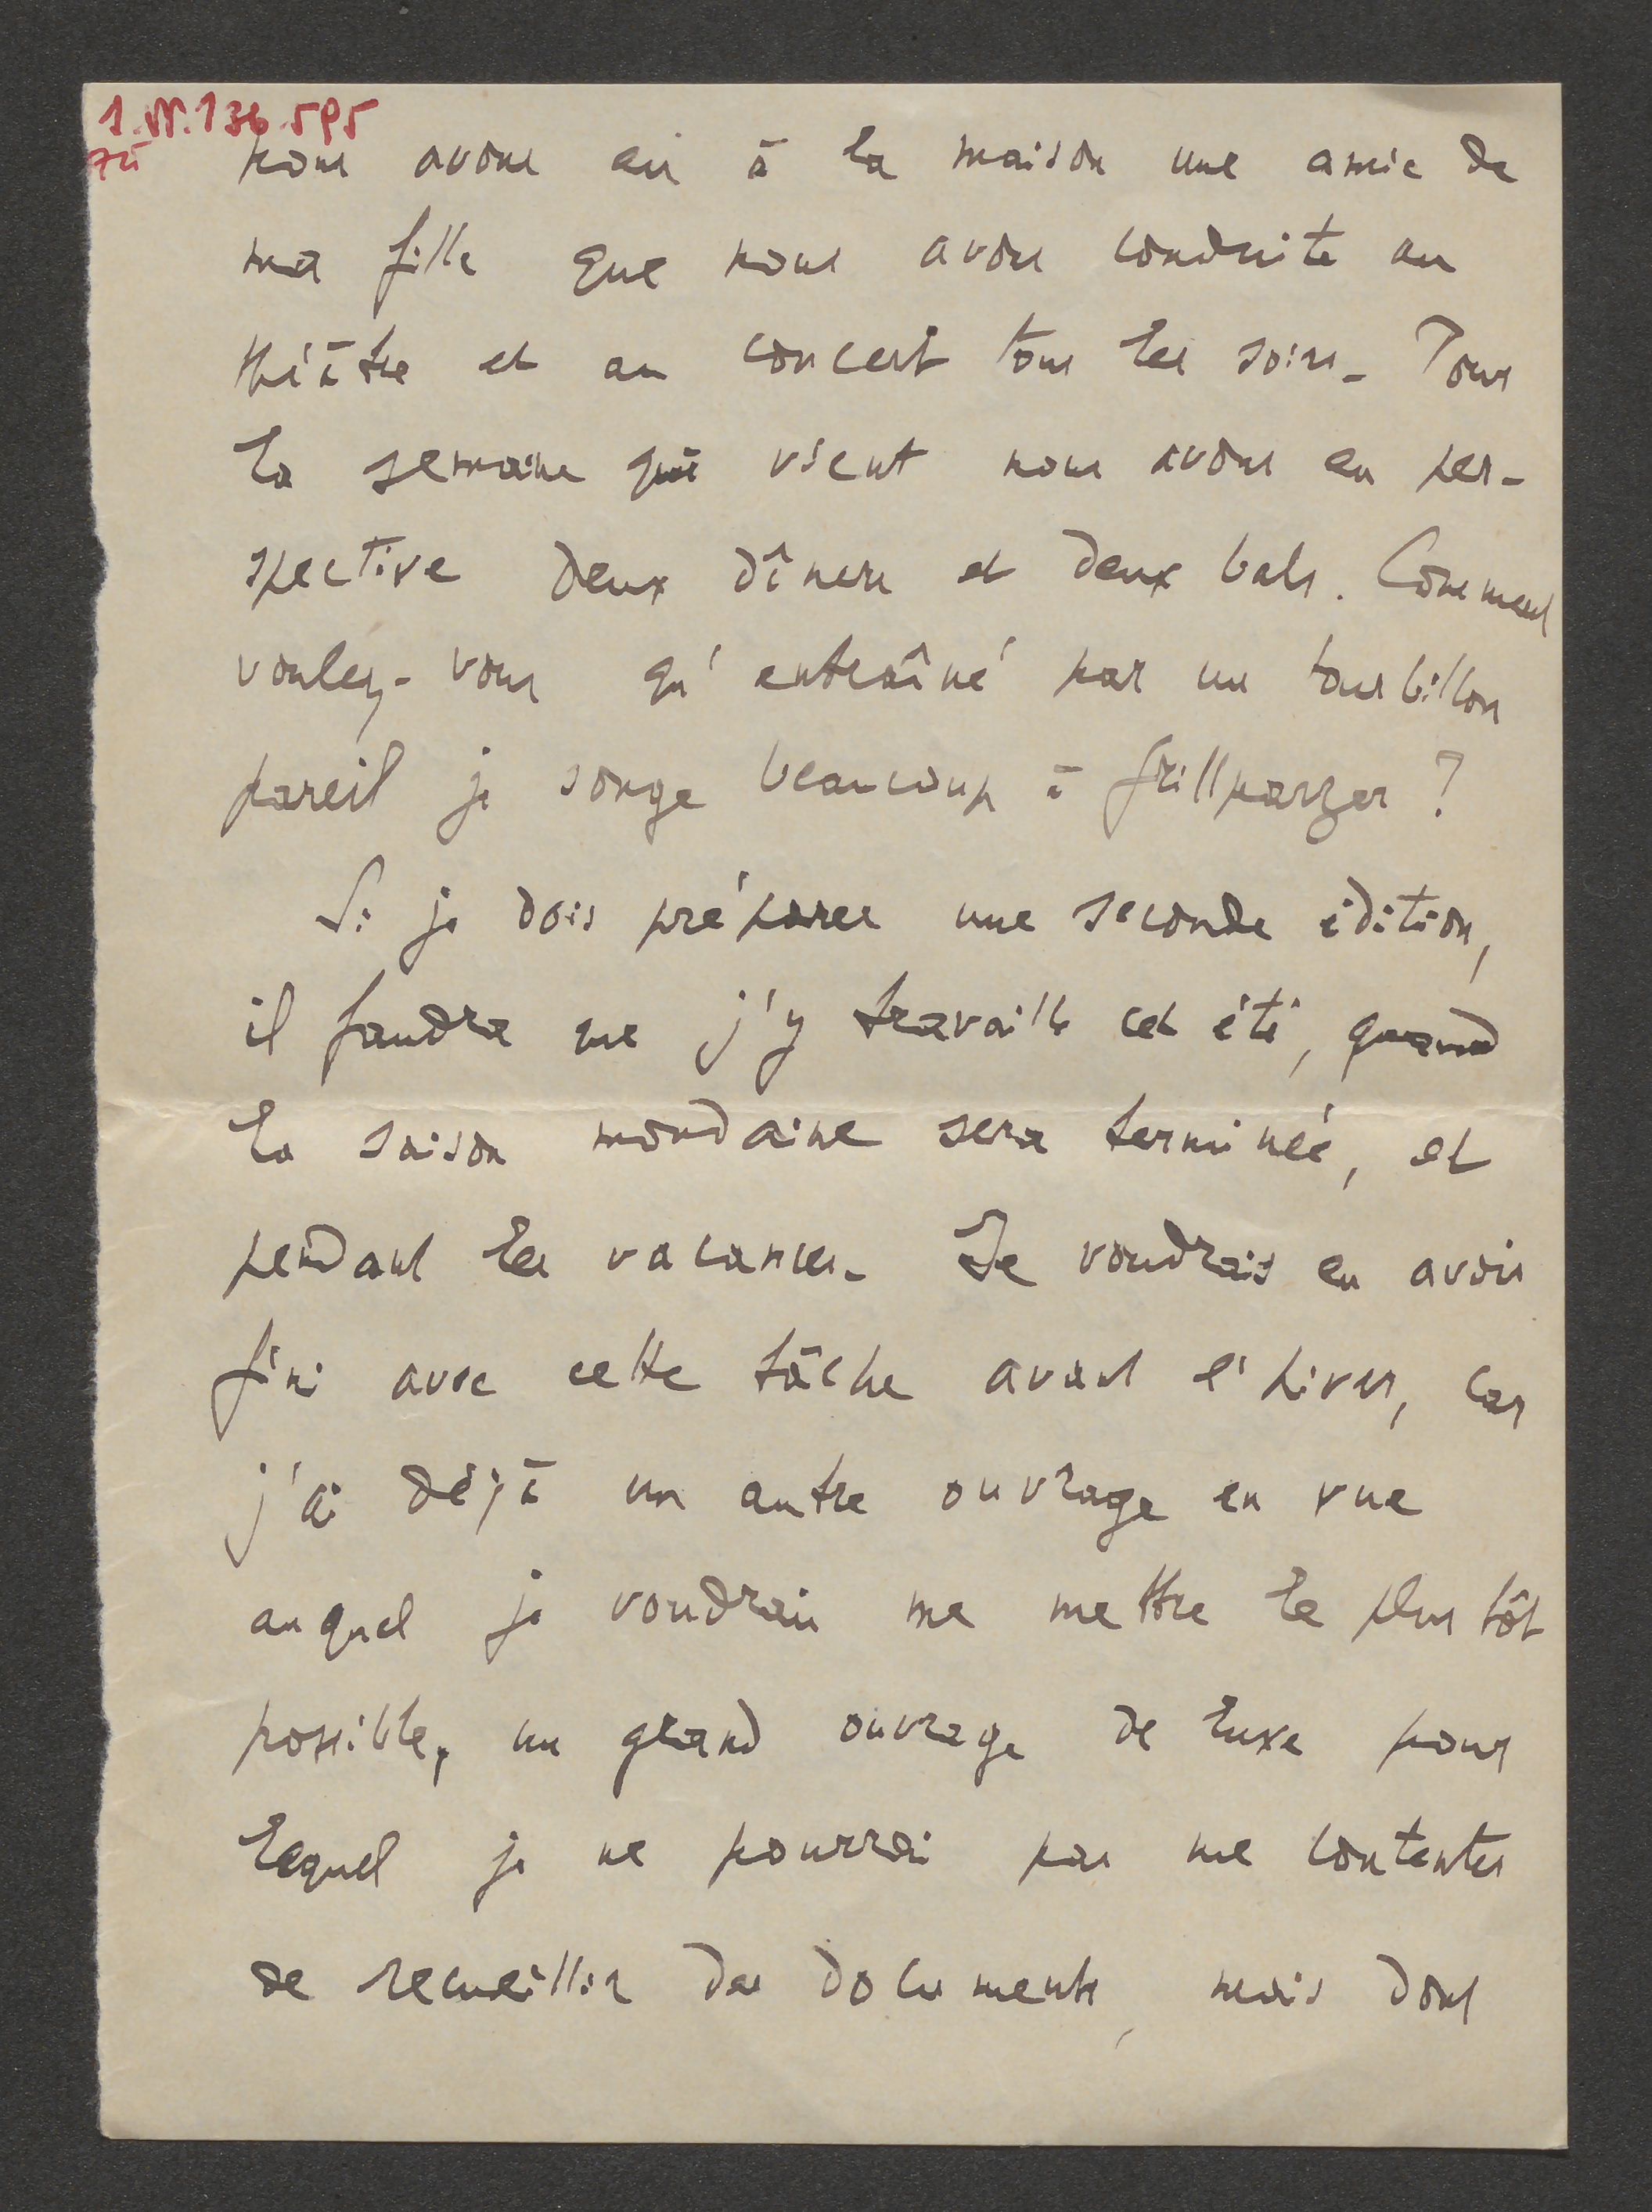 1.N.136.595
zú
nous avons eu à la maison une amie de
ma fille que nous avons conduite au
théâtre et au concert tous les soirs. Pour
la semaine qui vient nous avons en per-
spective deux dîners et deux bals. Comment
voulez-vous qu'entraîné par un tourbillon
pareil je songe beaucoup à Grillparzer ?
Si je dois préparer une seconde édition,
il faudra que j'y travaille cet été, quand
la saison mondaine sera terminée, et
pendant les vacances. Je voudrais en avoir
fini avec cette tâche avant l'hiver, car
j'ai déjà un autre ouvrage en vue
auquel je voudrais me mettre le plus tôt
possible, un grand ouvrage de luxe pour
lequel je ne pourrai pas me contenter
de recueillir des documents, mais dont